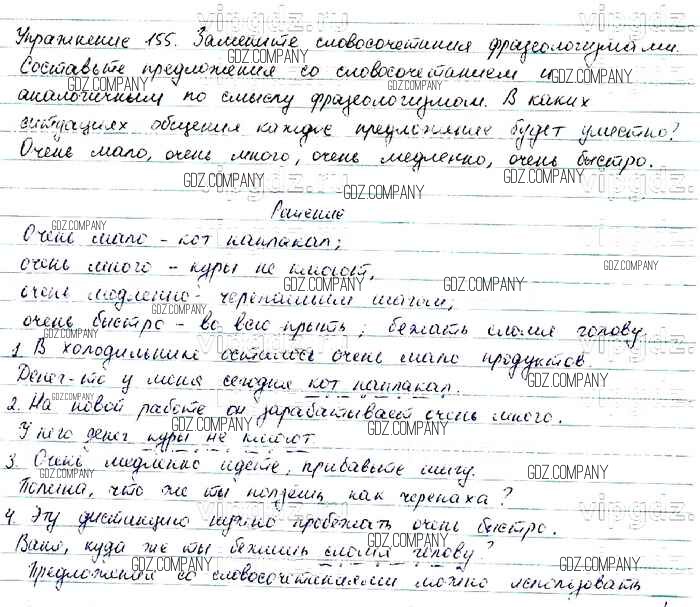 Упражнение 155. Замените словосочетания фразеологизмами.
Составьте предложения со словосочетанием и
аналогичным по смыслу фразеологизмом. В каких
ситуациях общения каждое предложение будет уместно?
Очень мало, очень много, очень медленно, очень быстро.
Решение
Очень мало - кот наплакал;
очень много - куры не клюют,
очень медленно - черепашьим шагом;
очень быстро - во всю прыть; бежать сломя голову.
1. В холодильнике осталось очень мало продуктов.
Денег-то у меня сегодня кот наплакал.
2. На новой работе он зарабатывает очень много.
У него денег куры не клюют
3. Очень медленно идете, прибавьте шагу.
Полина, что же ты ползешь как черепаха?
4. Эту дистанцию нужно пробежать очень быстро.
Ваня, куда же ты бежишь сломя голову?
Предложения со словосочетаниями можно использовать